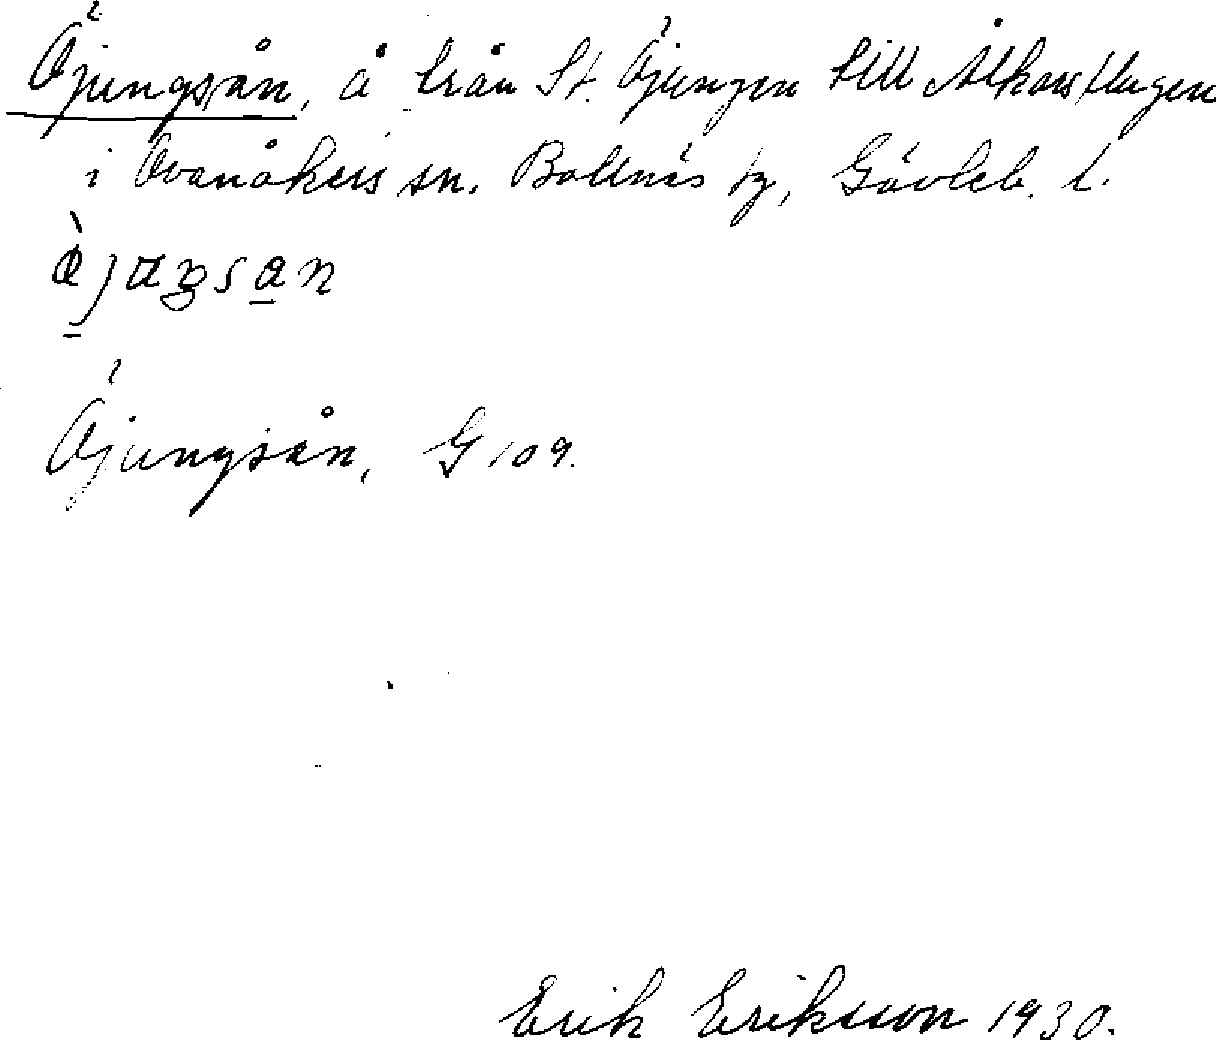 Öjungsån, å från St. Öjungen till Ålkarsflugen
i Ovanåkers sn. Bollnäs fg, Gävleb. l.
Öjungsån, G 109.
Erik Eriksson 1930.